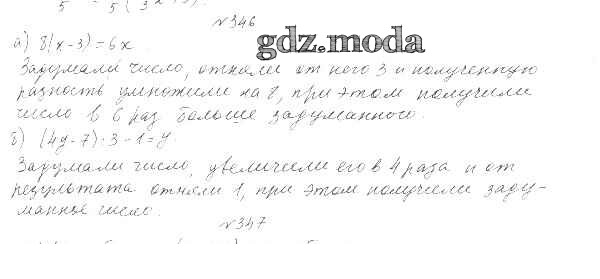 №346
а) 8(x-3)=6x.
gdz.moda
Задумали число, отняли от него 3 и полученную
разность умножили на 8, при этом получили
число в 6 раз больше задуманного.
б) (4y-7)·3-1=y.
Задумали число, увеличили его в 4 раза и от
результата отняли 1, при этом получили заду-
манное число.
№347